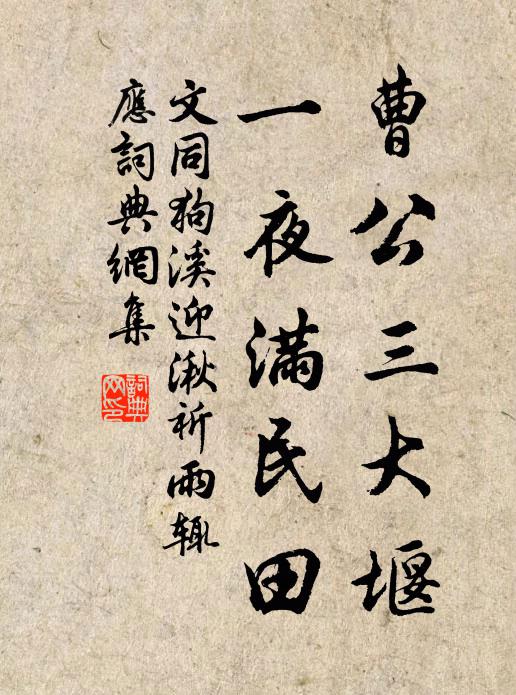 曹公三大堰
一夜满民田
文同狗溪迎湫祈雨輒
應詞典網集
詞典网印